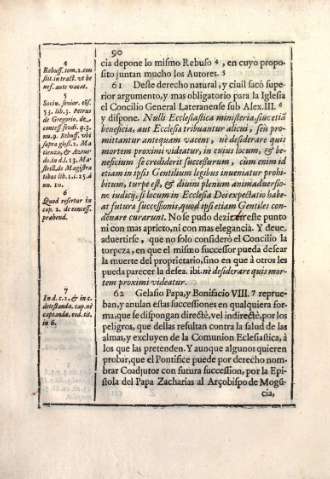 90
cia depone lo mismo Rebuso 4, en cuyo propo-
sito juntan mucho los Autores. 5
61 Deste derecho natural, y ciuil sacò supe-
rior argumento, y mas obligatorio para la Iglesia
el Concilio General Lateranense sub Alex.III. 6
y dispone. Nulli Ecclesiastica ministeria, siue etiā
beneficia, aut Ecclesiæ tribuantur alicui, seù pro-
mittantur antequam vacent, nè desiderare quis
mortem proximi videatur, in cuius locum, & be-
neficium se crediderit successurum, cùm enim id
etiam in ipsis Gentilium legibus inueniatur prohi-
bitum, turpe est, & diuini plenum animaduersio-
ne iudicij, si locum in Ecclesia Dei expectatio habe-
at futuræ successionis, quod ipsi etiam Gentiles con-
dēnare curarunt. No se pudo dezir este punto
ni con mas aprieto, ni con mas elegancia. Y deue,
aduertirse, que no solo considerò el Concilio la
torpeza, en que el mismo successor pueda desear
la muerte del proprietario, sino en que à otros les
pueda parecer la desea. ibi. nè desiderare quis mor-
tem proximi videatur.
62 Gelasio Papa, y Bonifacio VIII. 7 reprue-
ban, y anulan estas successiones en qualquiera for-
ma, que se dispongan directè, vel indirectè, por los
peligros, que dellas resultan contra la salud de las
almas, y excluyen de la Comunion Eclesiastica, à
los que las pretenden. Y aunque algunos quieren
probar, que el Pontifice puede por derecho nom-
brar Coadjutor con futura succession, por la Epi-
stola del Papa Zacharias al Arçobispo de Mogū
cia,
4
Rebuff. tom. 2. con
sit. in tract. vt be
nef. ante vacat.
5
6
Quod refertur in
cap. 2. de concess.
præbend.
7
in 6.